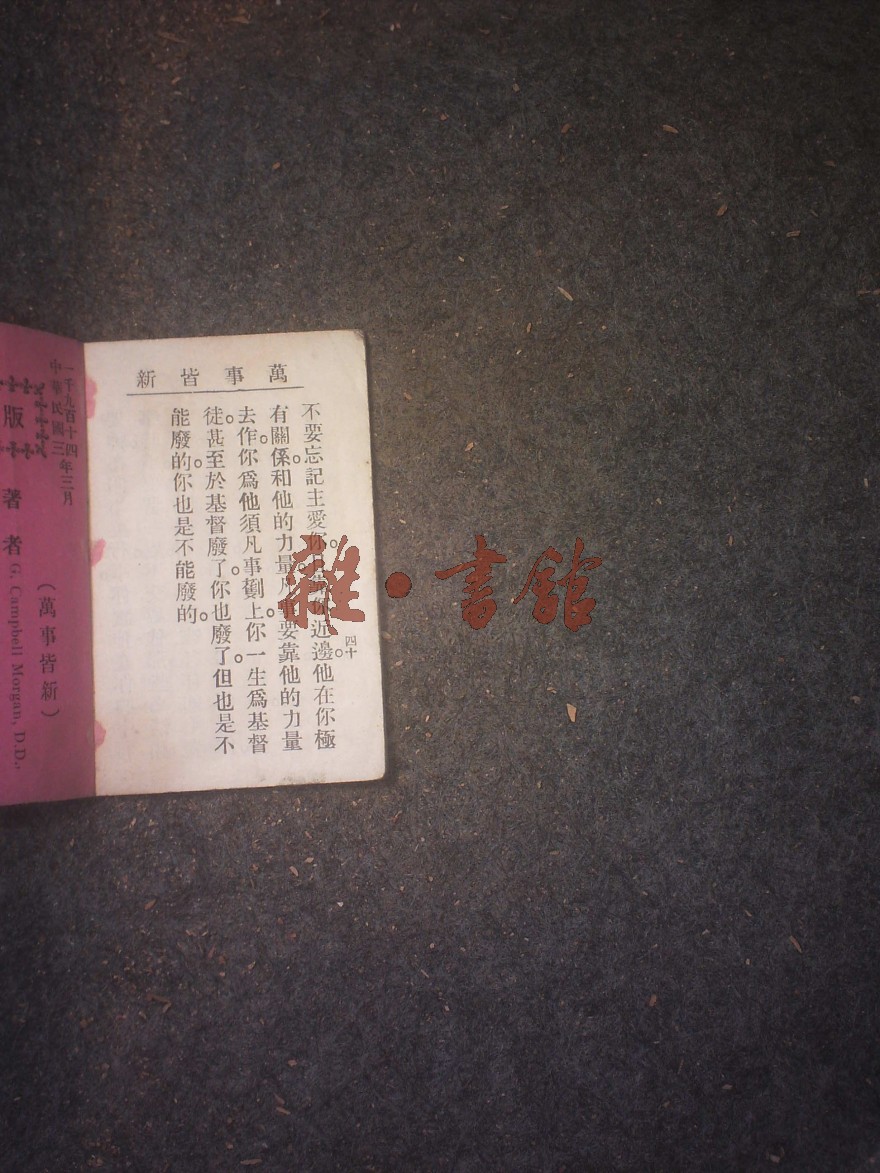 萬事皆新
不要忘記主愛你。且常你近邊。他在你極
有關係。和他的力量。凡事要靠他的力量
去作。你爲他須凡事劐上。你一生爲基督
徒。甚至於基督廢了。你也廢了。但也是不
能廢的。你也是不能廢的。
四十
一千九百十四年三月
中華民國三
版
著者 G. Campbell Morgan, D.D.,
(萬事皆新)
雜·書館